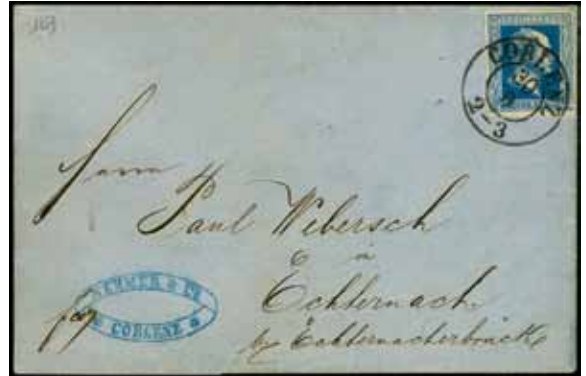 169
COBLENZ
30
9
2-3
Herrn
Paul Webersch
in
Echternach
per Echternacherbrück
& Co
COBLENZ